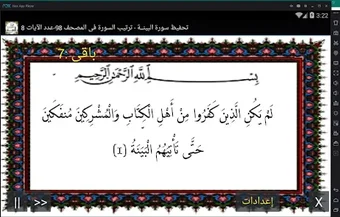 3:22
تحفيظ سورة البينة - ترتيب السورة فى المصحف 98-عدد الآيات 8
باقى.7
بِسْمِ اللَّهِ الرَّحْمَٰنِ الرَّحِيمِ
لَمْ يَكُنِ الَّذِينَ كَفَرُوا مِنْ أَهْلِ الْكِتَابِ وَالْمُشْرِكِينَ مُنفَكِّينَ
حَتَّى تَأْتِيَهُمُ الْبَيِّنَةُ (1)
|| >> إعدادات X